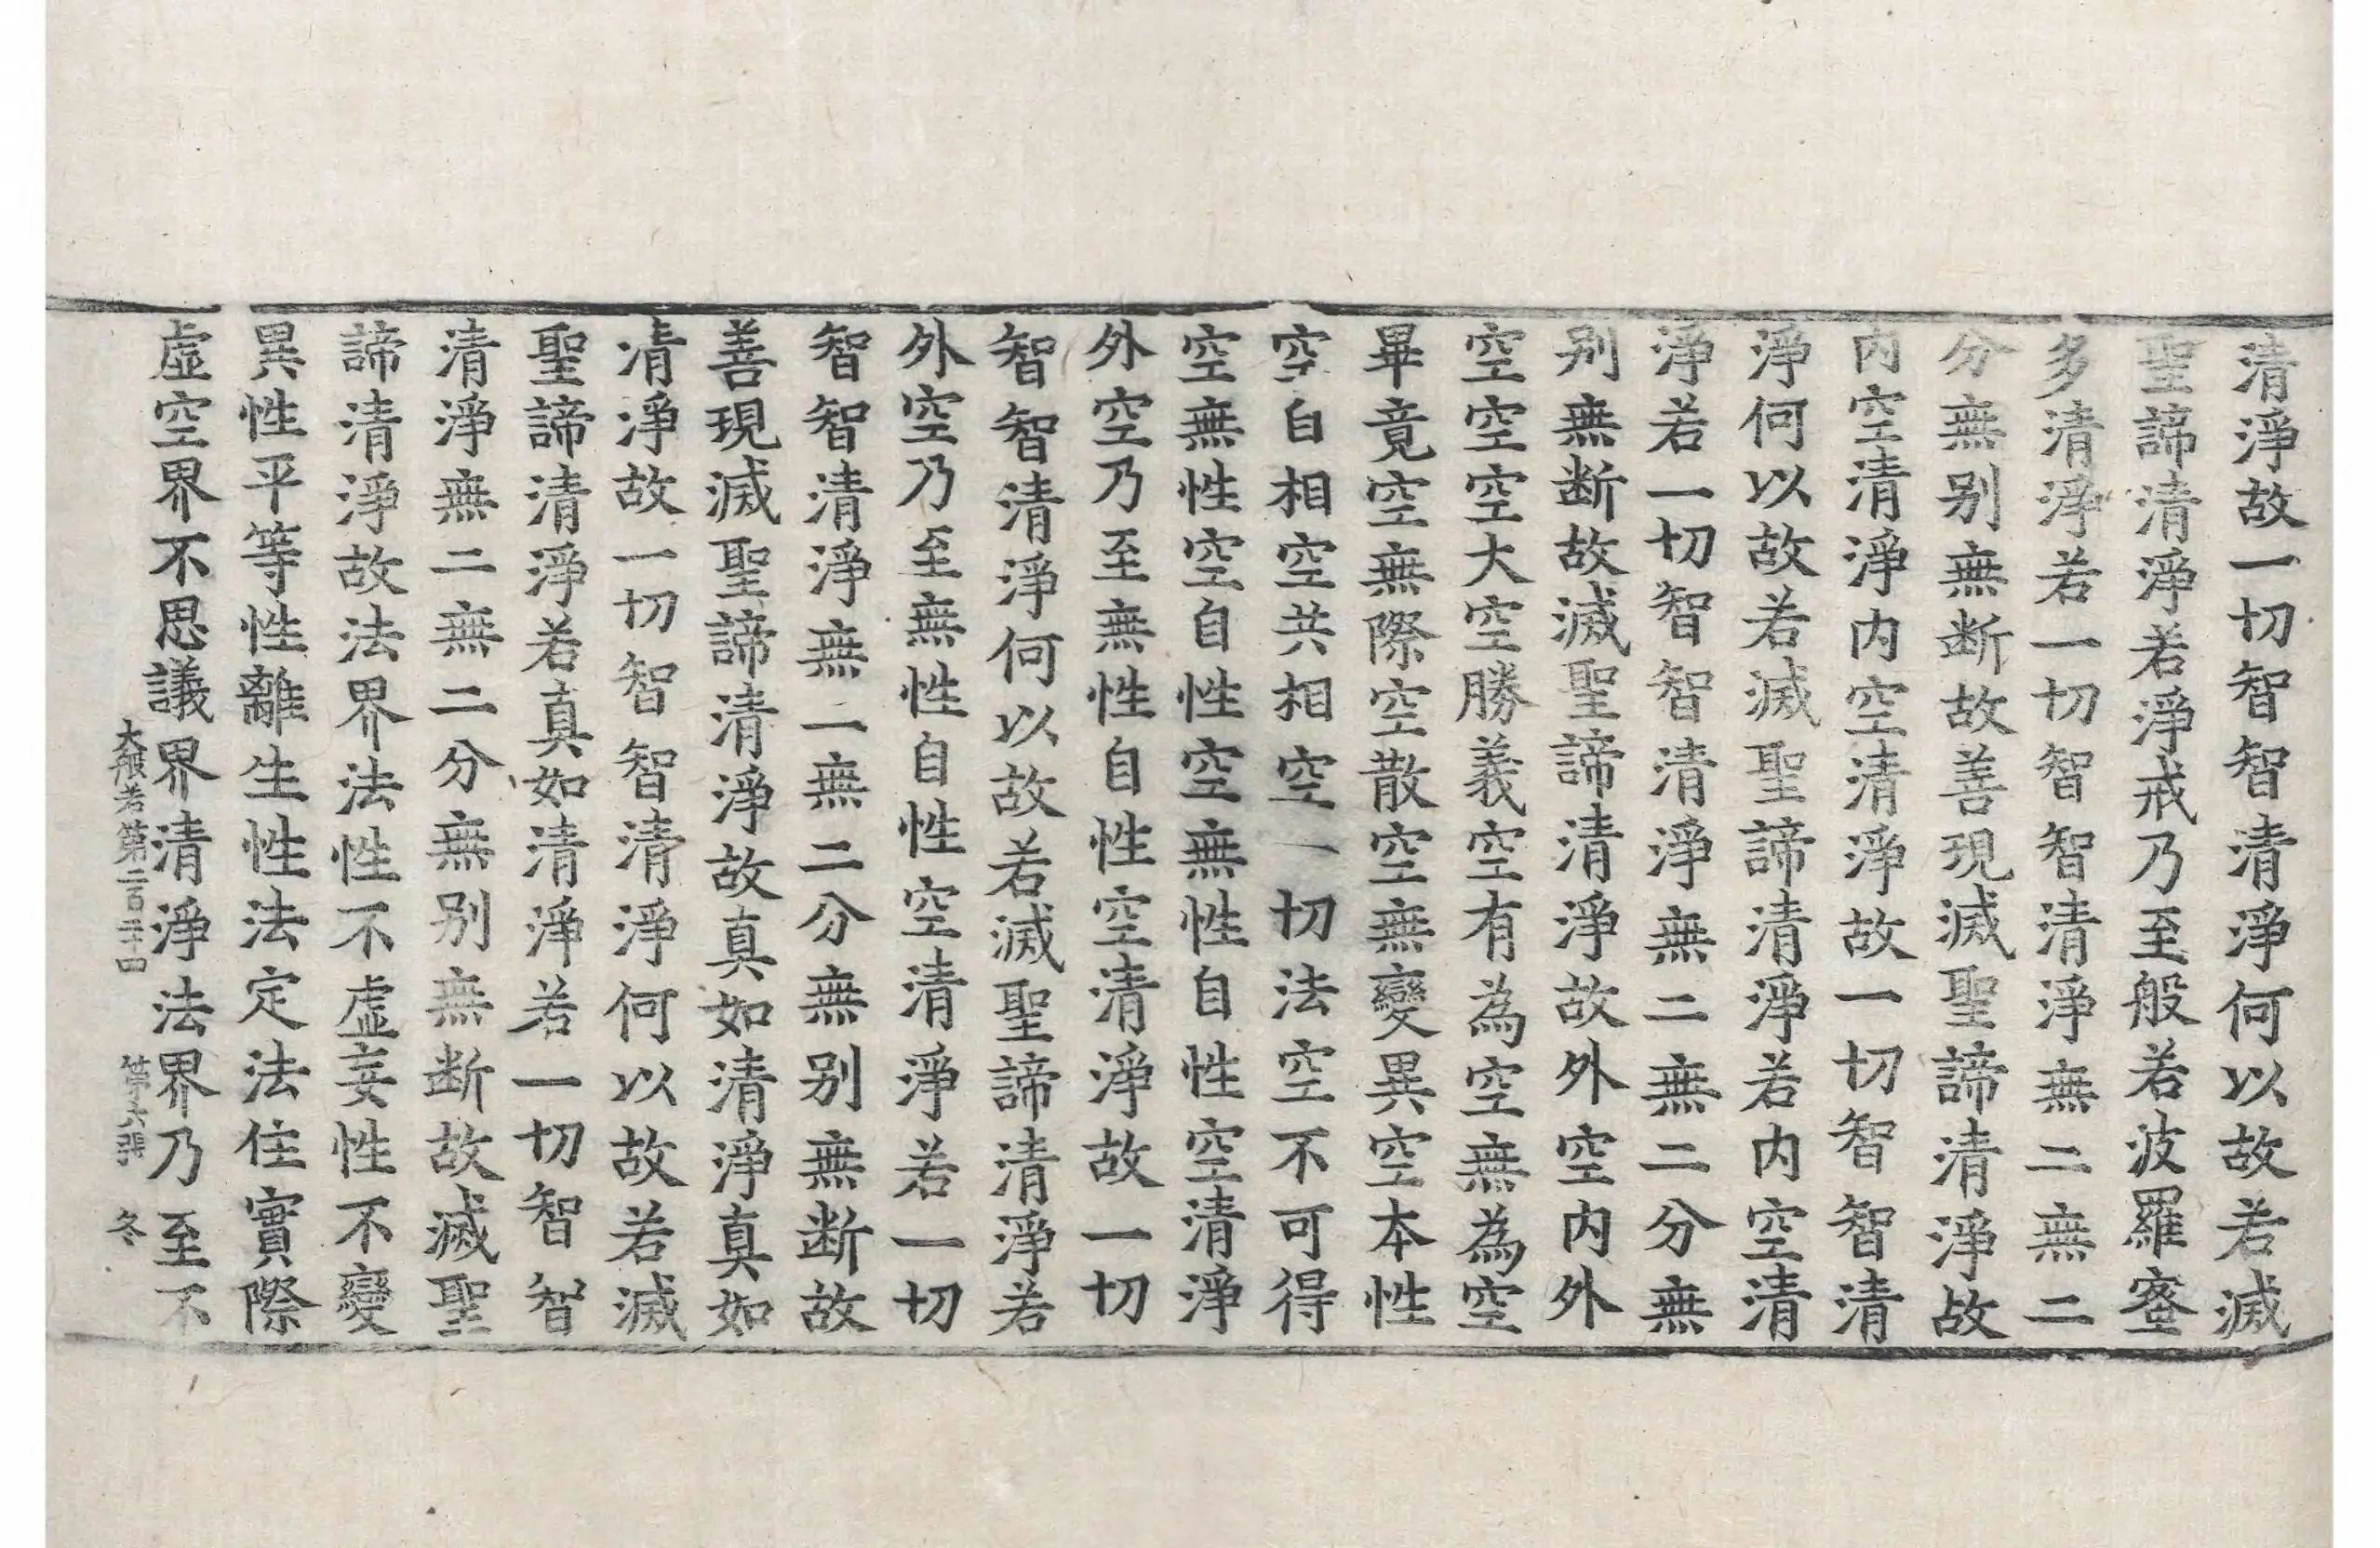 清淨故一切智智清淨何以故若滅
聖諦清淨若淨戒乃至般若波羅蜜
多清淨若一切智智清淨無二無二
分無別無断故善現滅聖諦清淨故
内空清淨内空清淨故一切智智清
淨何以故若滅聖諦清淨若内空清
淨若一切智智清淨無二無二分無
別無断故滅聖諦清淨故外空内外
空空空大空勝義空有為空無為空
畢竟空無際空散空無變異空本性
空自相空共相空一切法空不可得
空無性空自性空無性自性空清淨
外空乃至無性自性空清淨故一切
智智清淨何以故若滅聖諦清淨若
外空乃至無性自性空清淨若一切
智智清淨無二無二分無別無断故
善現滅聖諦清淨故真如清淨真如
清淨故一切智智清淨何以故若滅
聖諦清淨若真如清淨若一切智智
清淨無二無二分無別無断故滅聖
諦清淨故法界法性不虛妄性不變
異性平等性離生性法定法住實際
虛空界不思議界清淨法界乃至不
大般若第二百二十四 第六張 冬